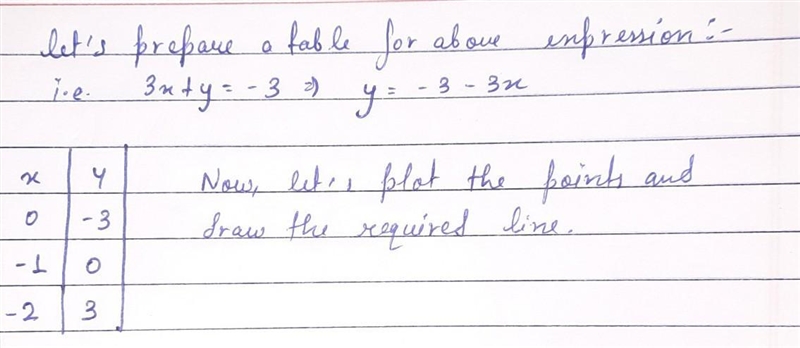 let's prepare a table for above expression :-
i.e. 3x + y = -3 ⇒ y = -3 - 3x
x y
0 -3
-1 0
-2 3
Now, let's plot the points and
draw the required line.